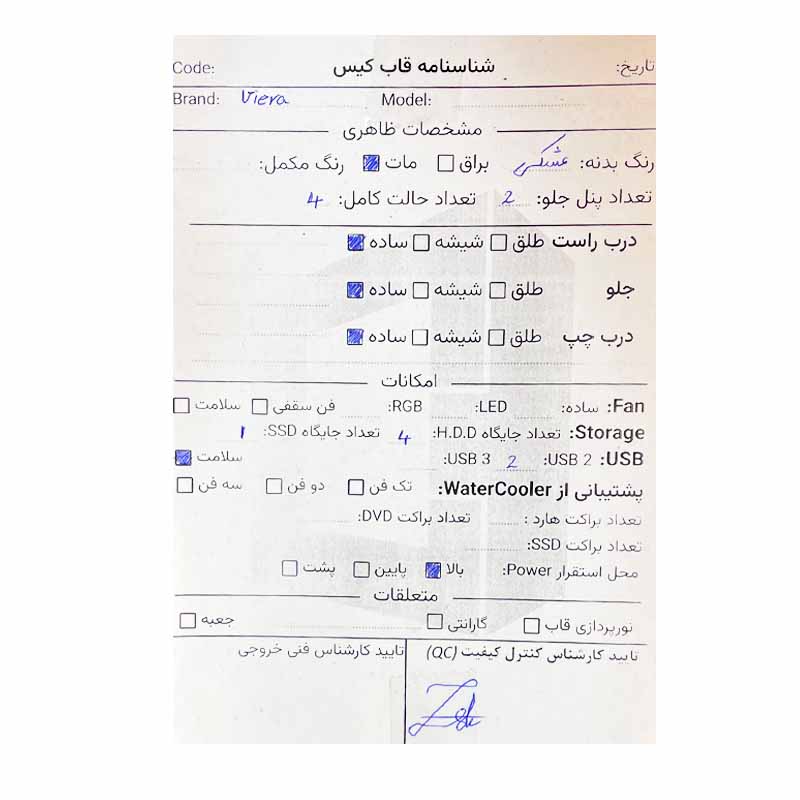 تاریخ: شناسنامه قاب کیس Code:
Brand: Viera Model:
مشخصات ظاهری
رنگ بدنه: مشکی براق مات رنگ مکمل:
تعداد پنل جلو: 2 تعداد حالت کامل: 4
درب راست طلق شیشه ساده
جلو طلق شیشه ساده
درب چپ طلق شیشه ساده
امکانات
Fan: ساده: LED: RGB: فن سقفی سلامت
Storage: تعداد جایگاه H.D.D: 4 تعداد جایگاه SSD: 1
USB: USB 2: 2 USB 3: سلامت
پشتیبانی از WaterCooler: تک فن دو فن سه فن
تعداد براکت هارد : تعداد براکت DVD:
تعداد براکت SSD:
محل استقرار Power: بالا پایین پشت
متعلقات
نورپردازی قاب گارانتی جعبه
تایید کارشناس کنترل کیفیت (QC) تایید کارشناس فنی خروجی